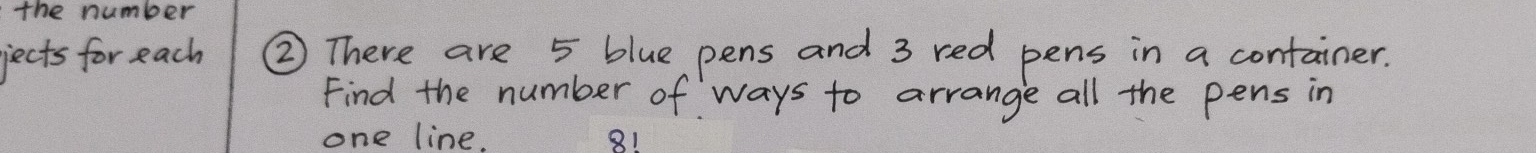 the number
jects for each
② There are 5 blue pens and 3 red pens in a container.
Find the number of ways to arrange all the pens in
one line. 8!